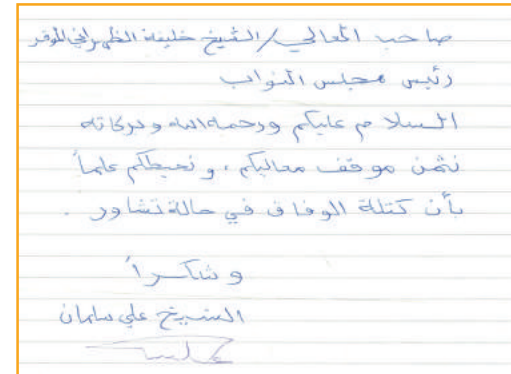 صاحب المعالي/الشيخ خليفة الظهراني الموقر
رئيس مجلس النواب
السلام عليكم ورحمة الله وبركاته
نثمن موقف معاليكم، ونحيطكم علماً
بأن كتلة الوفاق في حالة تشاور.
وشكراً
الشيخ علي سلمان